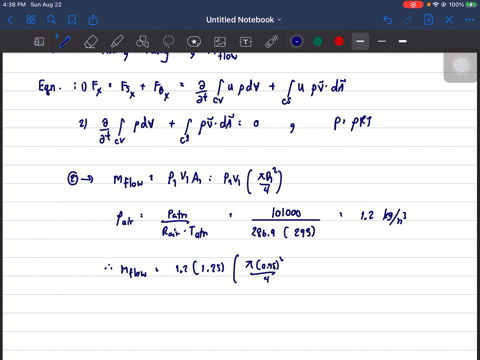 4:38 PM Sun Aug 22
100%
Untitled Notebook
flow
Eqn : 1) Fx = Fsx + FBx = ∂/∂t ∫CV u ρ d∀ + ∫CS u ρv⃗ · dA⃗
2) ∂/∂t ∫CV ρ d∀ + ∫CS ρv⃗ · dA⃗ = 0 , P = ρRT
② → Mflow = ρ1 V1 A1 = ρ1 V1 ( πD1² / 4 )
ρair = Patm / Rair · Tatm = 101000 / 286.9 ( 293 ) = 1.2 kg/m³
∴ Mflow = 1.2 ( 1.25 ) ( π (0.75)² / 4